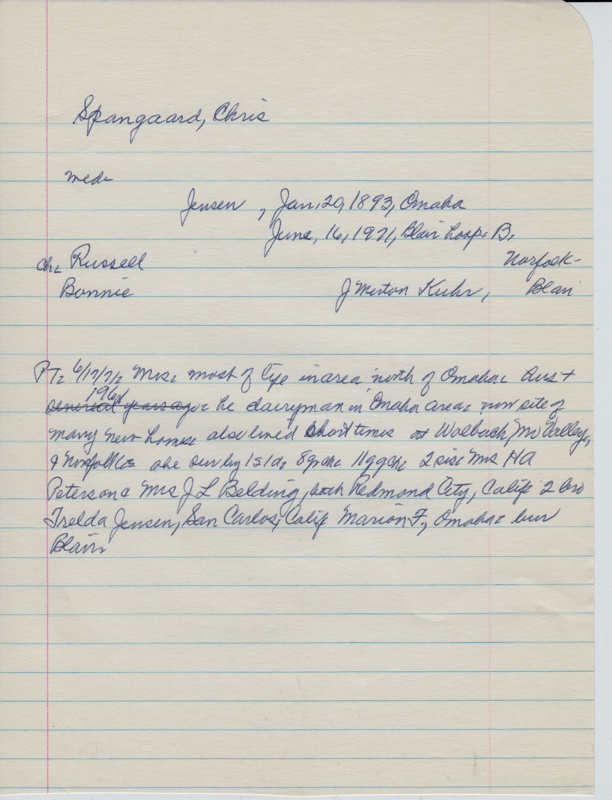 Spangaard, Chris
med:
Jensen, Jan. 20, 1893, Omaha
June, 16, 1971, Blair hosp: B,
ch: Russell Norfolk-
Bonnie J Merton Kuhr, Blair
PT: 6/17/71: Mrs: most of life in area north of Omaha:
1961
several years ago: he dairyman in Omaha area: now site of
many new homes also lived short times at Wolbach,
& Norfolk: she sur by 1s 1d: 8grch: 11ggch: 2 sis: Mrs HA
Peterson & Mrs J L Belding, both Redmond City, Calif: 2 bro
Trelda Jensen, San Carlos, Calif Marion F, Omaha: bur
Blair